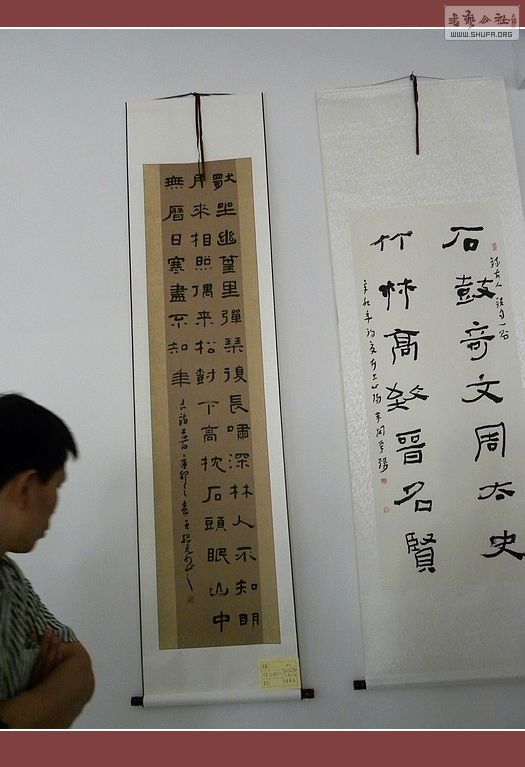 書藝公社
WWW.SHUFA.ORG
石鼓奇文周太史
竹林高致晉名賢
獨坐幽篁里彈琴復長嘯深林人不知明
月來相照偶來松樹下高枕石頭眠山中
無曆日寒盡不知年
古詩二首辛卯之春